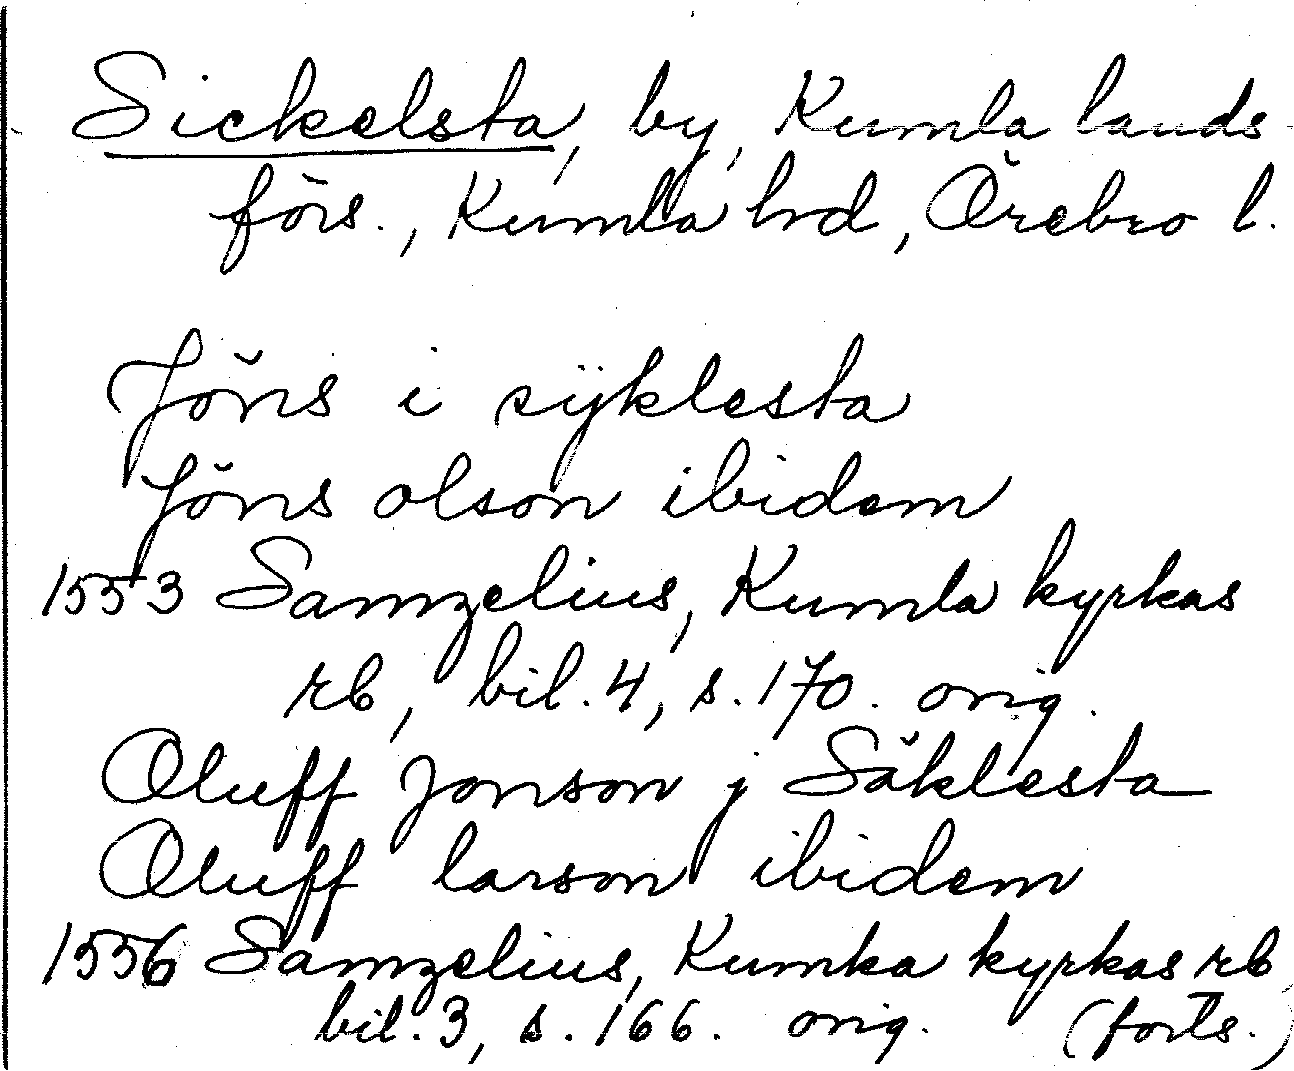 Sickelsta, by, Kumla lands-
förs., Kumla hrd, Örebro l.
Jöns i sÿklesta
Jöns olson ibidem
1553 Samzelius, Kumla kyrkas
rb, bil. 4, s. 170. orig.
Oluff Jonson j Säklesta
Oluff larson ibidem
1556 Samzelius, Kumka kyrkas rb
bil. 3, s. 166. orig. (forts.)